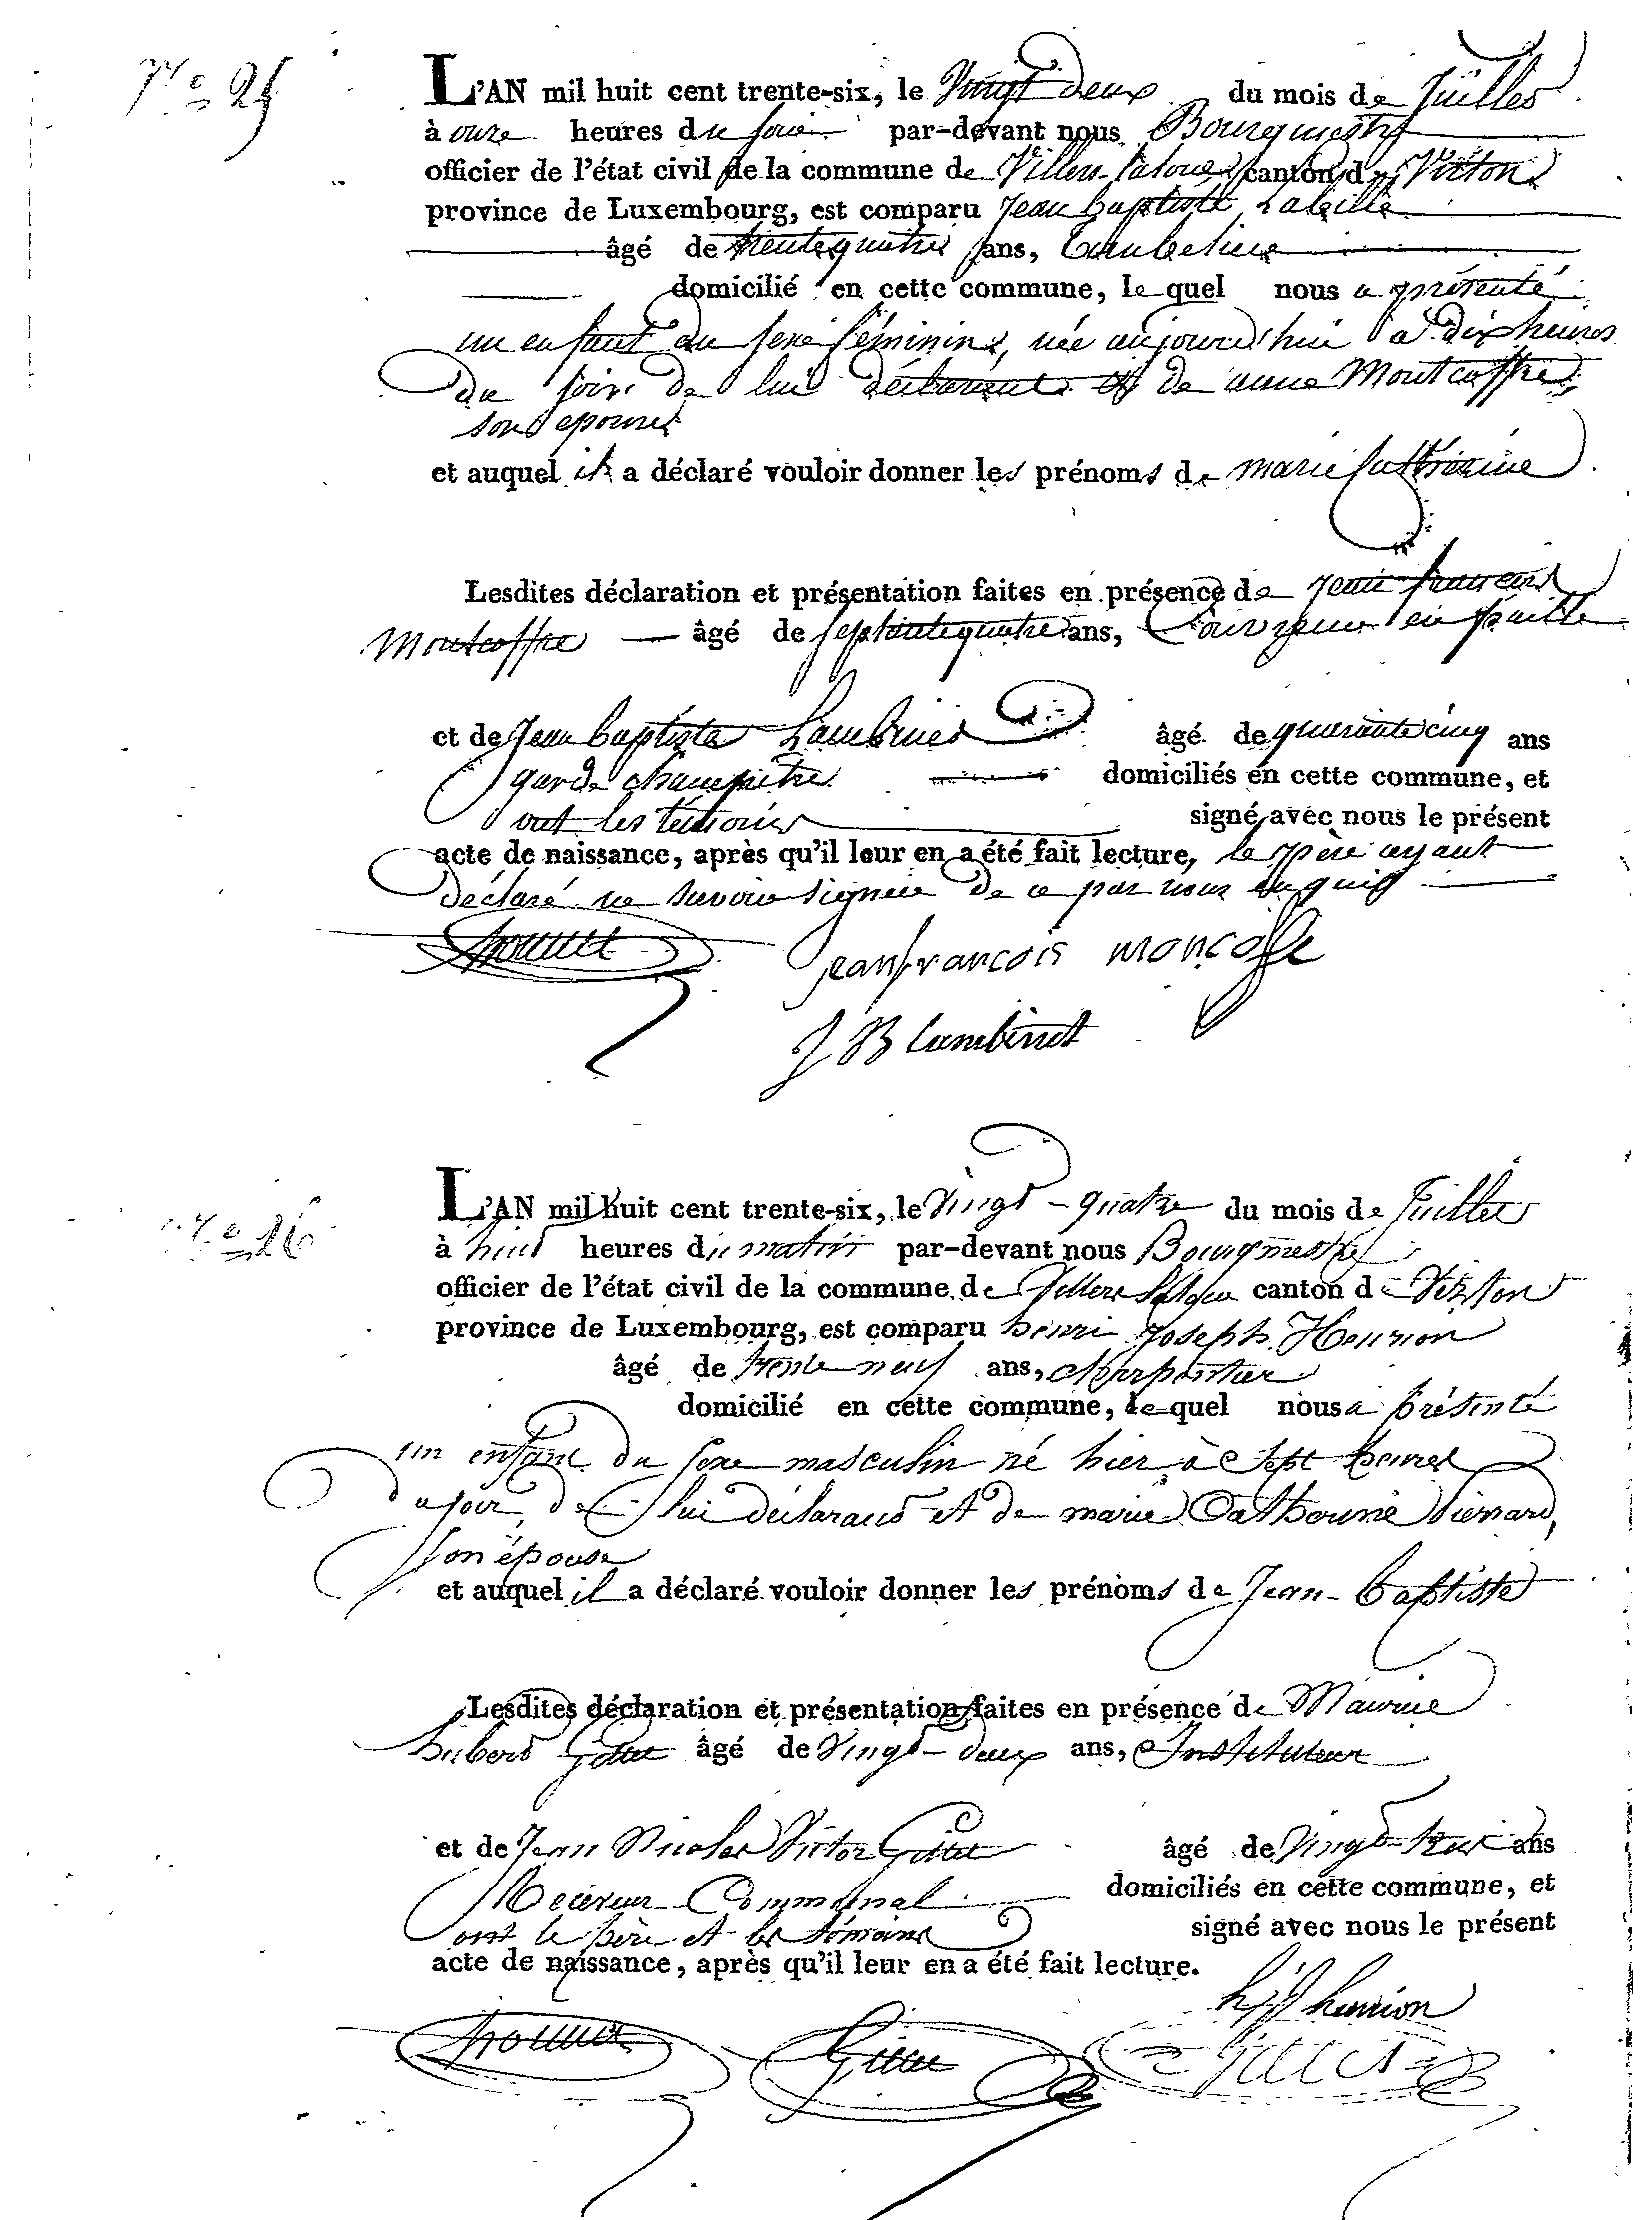 N.º 25
L'AN mil huit cent trente-six, le Vingt Deux du mois de Juillet
à onze heures du soir par-devant nous Bourguestre
officier de l'état civil de la commune de Villers-laloue canton de Virton
province de Luxembourg, est comparu Jean baptiste
âgé de trentequatre ans,
domicilié en cette commune, lequel nous a présenté
un enfant du sexe féminin, née aujourd'hui à dix heures
du soir de lui déclarant et de anne Montcoffre
son epouse
et auquel il a déclaré vouloir donner les prénoms de marie Catherine
Lesdites déclaration et présentation faites en présence de Jean françois
Montcoffre âgé de septantequatre ans, Couvreur en paille
et de Jean baptiste Lambinet âgé de quarante cinq ans
garde champètre domiciliés en cette commune, et
ont les témoins signé avec nous le présent
acte de naissance, après qu'il leur en a été fait lecture, le père ayant
déclaré ne savoir signer de ce par nous enquis
jean francois moncofle
J B lambinet
N.º 26
L'AN mil huit cent trente-six, le Vingt-quatre du mois de Juillet
à huit heures du matin par-devant nous Bourgmestre
officier de l'état civil de la commune de Villers laloue canton de Virton
province de Luxembourg, est comparu henri Joseph Henrion
âgé de trente neuf ans, charpentier
domicilié en cette commune, lequel nous a présenté
un enfant du sexe masculin né hier à sept heures
du soir de lui déclarant et de marie Catherine Piérard,
son épouse
et auquel il a déclaré vouloir donner les prénoms de Jean-baptiste
Lesdites déclaration et présentation faites en présence de Maurice
hubert Gillet âgé de Vingt-deux ans, Instituteur
et de Jean Nicolas Victor Gillet âgé de Vingt-huit ans
Receveur Communal domiciliés en cette commune, et
ont le père et les témoins signé avec nous le présent
acte de naissance, après qu'il leur en a été fait lecture.
h j henrion
Gillet
Gillet